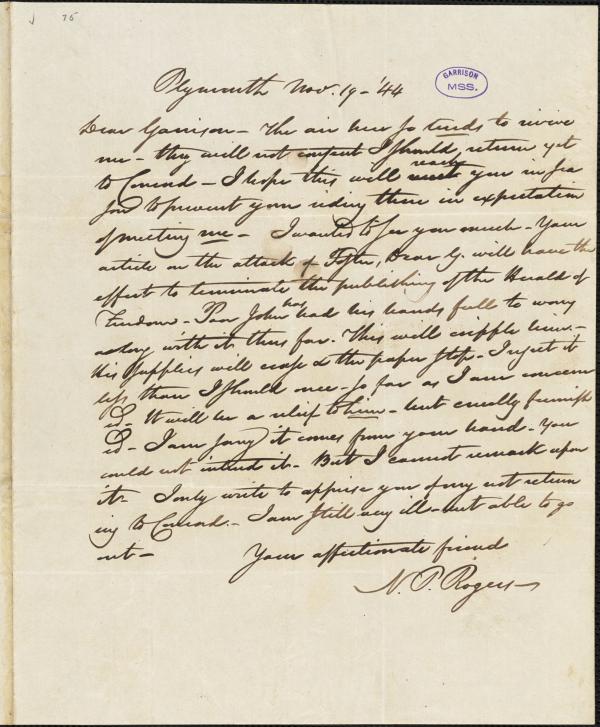 75
Plymouth Nov. 19 - '44
GARRISON
MSS.
Dear Garrison - The air here so tends to revive
me - they will not consent I should return yet
to Concord - I hope this will reach you in sea
son to prevent your riding there in expectation
of meeting me - I wanted to see you much - Your
article on the attack of Foster, Dear G. will have the
effect to terminate the publishing of the Herald of
Freedom - Poor John has had his hands full to worry
along with it thus far. This will cripple him. -
His supplies will cease & the paper stop - I regret it
less than I should once - so far as I am concern
ed - It will be a relief to him - but cruelly furnish
ed - I am sorry it comes from your hand - You
could not intend it - But I cannot remark upon
it - I only write to apprise you of my not return
ing to Concord - I am still very ill - not able to go
out -
Your affectionate friend
N. P. Rogers -